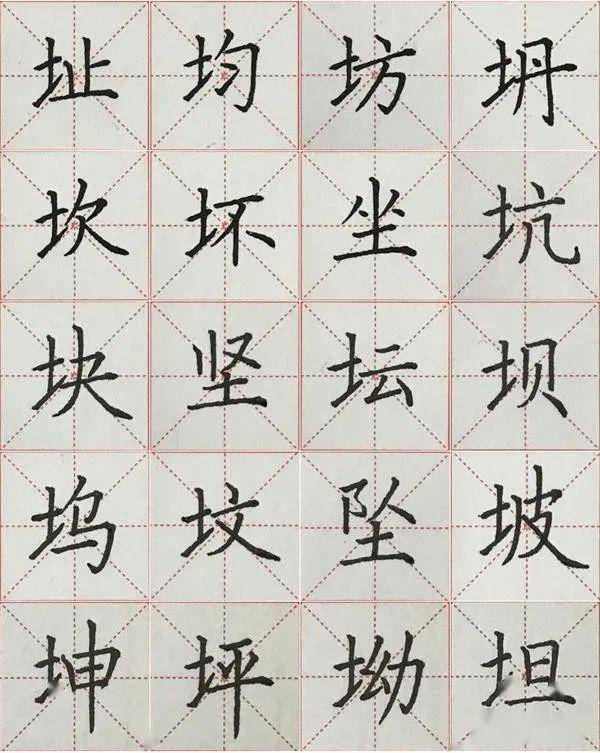 址均坊坍
坎坏坐坑
块坚坛坝
坞坟坠坡
坤坪坳坦